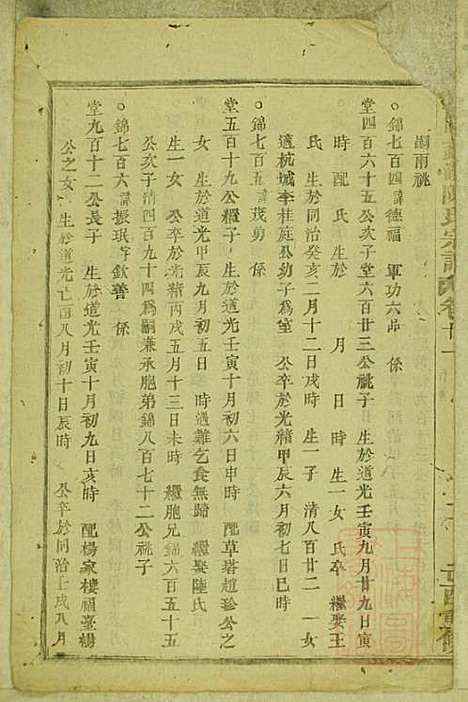 嗣雨祧
○錦七百四諱德福　軍功六品　係
堂四百六十五公次子堂六百廿三公祧子　生於道光壬寅九月廿九日寅
時　配　氏　生於　年　月　日　時　生一女　氏卒　繼娶王
氏　生於同治癸亥二月十二日戌時　生一子　清八百廿二　一女
適杭城李桂庭公幼子為室　公卒於光緒甲辰六月初七日巳時
○錦七百五諱茂勇　係
堂五百十九公繼子　生於道光壬寅十月初六日申時　配草塔趙珍公之
女　生於道光甲辰九月初五日　時遇難乞食無歸　繼娶陸氏
生一女　公卒於光緒丙戌五月十三日未時　繼胞兄錦六百五十五
公次子清四百九十四為嗣兼承胞弟錦八百七十二公祧子
○錦七百六諱振珉字欽善　係
堂九百十二公長子　生於道光壬寅十月初九日亥時　配楊家樓福臺楊
公之女　生於道光亡酉八月初十日辰時　公卒於同治壬戌八月
陳氏宗譜
卷廿一